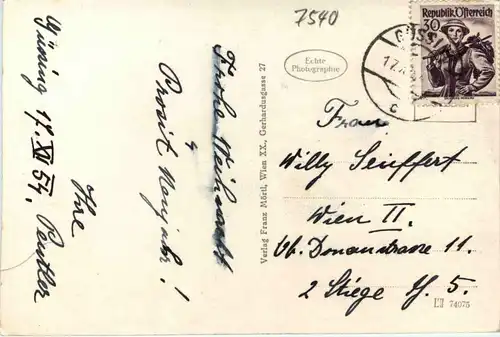 7540
Frohe Weihnacht
&
Prosit Neujahr!
Ihre
17. XII 54.
Echte
Photographie
Verlag Franz Mörtl, Wien XX., Gerhardusgasse 27
Republik Österreich
30
Frau
Willy Seuffert
Wien II.
Ob. Donaustrasse 11.
2 Stiege T. 5.
74075